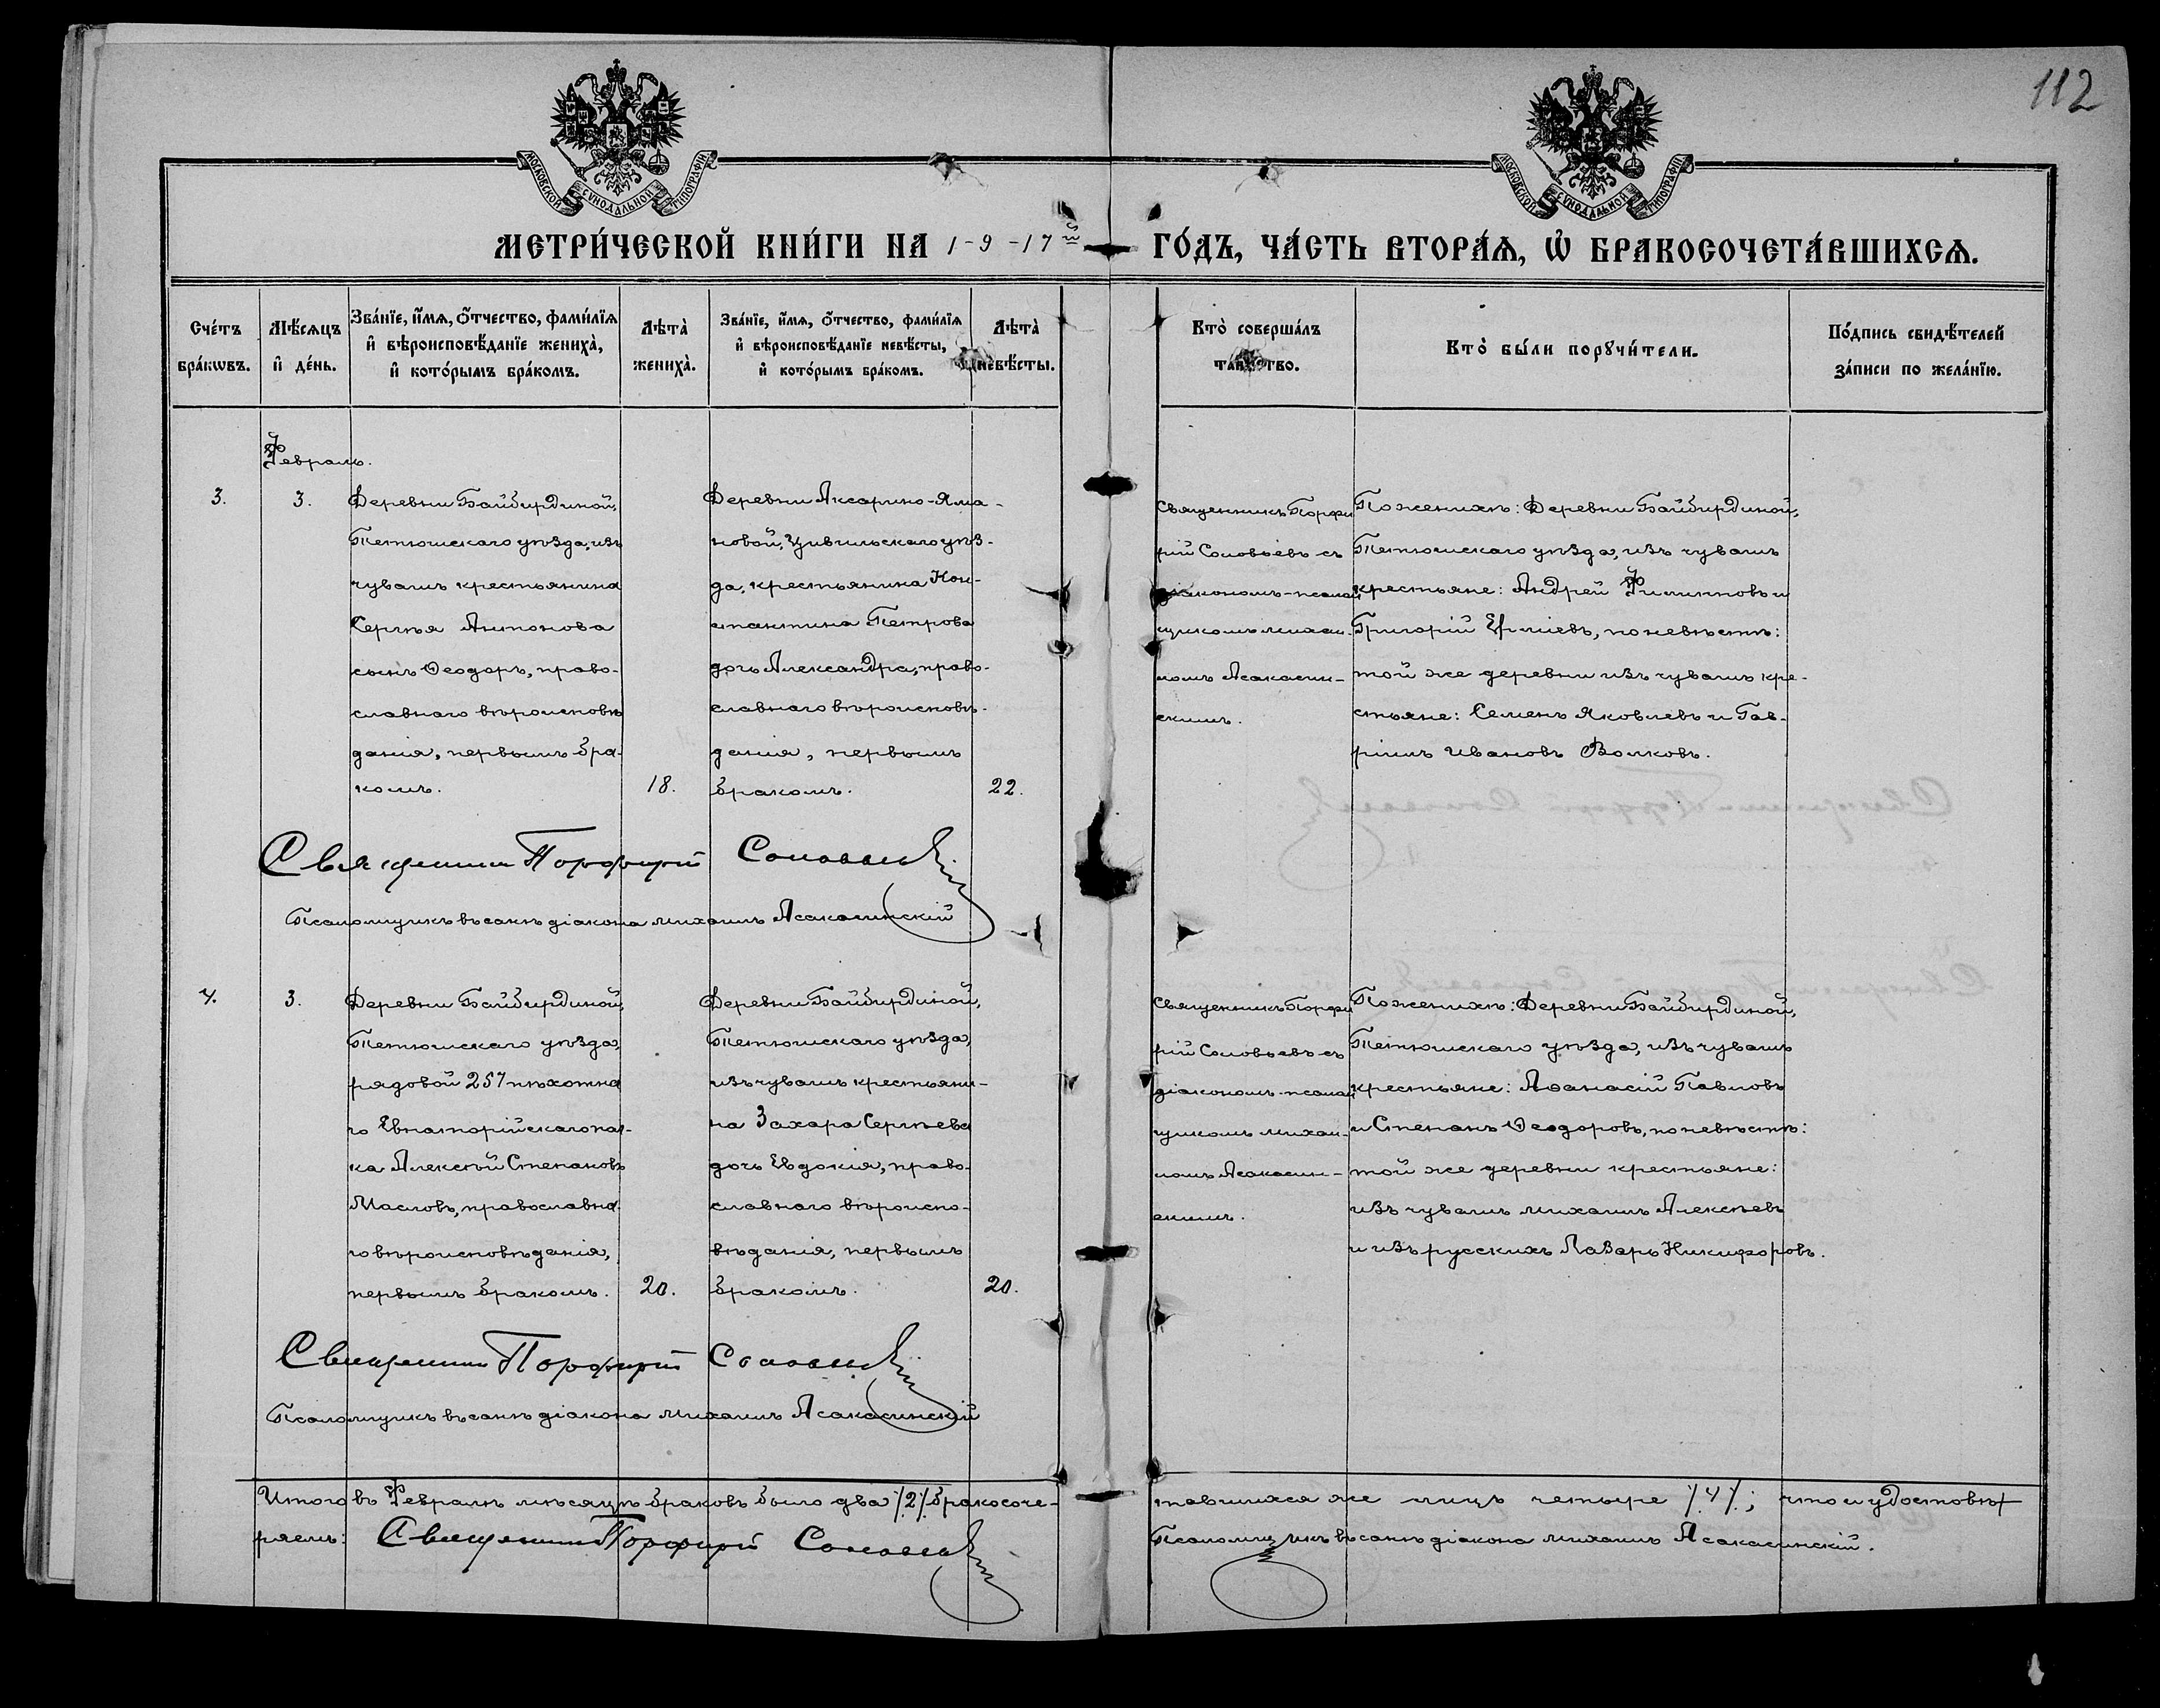 112
МОСКОВСКОЙ СѴНОДАЛЬНОЙ ТИПОГРАФІИ
МОСКОВСКОЙ СѴНОДАЛЬНОЙ ТИПОГРАФІИ
МЕТРИ́ЧЕСКОЙ КНИ́ГИ НА 1-9-17й ГО́ДЪ, ЧА́СТЬ ВТОРА́Ѧ, Ѽ БРАКОСОЧЕТА́ВШИХСѦ.
Сче́тъ
бра́кѡвъ.
Мѣ́сяцъ
и҆ де́нь.
Зва́нїе, и҆́мѧ, ѻ҆́тчество, фами́лїѧ
и҆ вѣроисповѣ́данїе жениха̀,
и҆ кото́рымъ бра́комъ.
Лѣта̀
жениха̀.
Зва́нїе, и҆́мѧ, ѻ҆́тчество, фами́лїѧ
и҆ вѣроисповѣ́данїе невѣ́сты,
и҆ кото́рымъ бра́комъ.
Лѣта̀
невѣ́сты.
Кто̀ соверша́лъ
та́инство.
Кто̀ бы́ли порꙋчи́тели.
По́дпись свидѣ́телей
за́писи по жела́нїю.
Февраль.
3.
3.
Деревни Байбирдиной,
Тетюшскаго уѣзда, изъ
чувашъ крестьянина
Сергѣя Антонова
сынъ Ѳеодоръ, право-
славнаго вѣроисповѣ
данія, первымъ бра-
комъ.
18.
Деревни Аксарино-Яма-
новой, Цивильскаго уѣз-
да, крестьянина Кон-
стантина Петрова
дочь Александра, право-
славнаго вѣроисповѣ-
данія, первымъ
бракомъ.
22.
Священникъ Порфи
рій Соловьевъ съ
діакономъ-псалом
щикомъ Михаи-
ломъ Асакасин-
скимъ.
По женихѣ: Деревни Байбирдиной,
Тетюшскаго уѣзда, изъ чувашъ
крестьяне: Андрей Филипповъ и
Григорій Ефиміевъ, по невѣстѣ:
той же деревни изъ чувашъ кре-
стьяне: Семенъ Яковлевъ и Гав-
ріилъ Ивановъ Волковъ.
Священник Порфирій Соловьев
Псаломщикъ въ санѣ діакона Михаилъ Асакасинскій
4.
3.
Деревни Байбирдиной,
Тетюшскаго уѣзда,
рядовой 257 пѣхотна
го Евпаторійскаго пол-
ка Алексѣй Степановъ
Масловъ, православна
го вѣроисповѣданія,
первымъ бракомъ.
20.
Деревни Байбирдиной,
Тетюшскаго уѣзда,
изъ чувашъ крестьяни-
на Захара Сергѣева
дочь Евдокія, право-
славнаго вѣроиспо-
вѣданія, первымъ
бракомъ.
20.
Священникъ Порфи
рій Соловьевъ съ
діакономъ-псалом
щикомъ Михаи-
ломъ Асакасин-
скимъ.
По женихѣ: Деревни Байбирдиной,
Тетюшскаго уѣзда, изъ чувашъ
крестьяне: Аѳанасій Павловъ
и Степанъ Ѳеодоровъ, по невѣстѣ:
той же деревни крестьяне:
изъ чувашъ Михаилъ Алексѣевъ
и изъ русскихъ Лазарь Никифоровъ.
Священник Порфирій Соловьев
Псаломщикъ въ санѣ діакона Михаилъ Асакасинскій
Итого въ Февралѣ мѣсяцѣ браковъ было два /2/ бракосоче-
тавшихся же лицъ четыре /4/; что и удостовѣ
ряемъ: Священник Порфирій Соловьев
Псаломщикъ въ санѣ діакона Михаилъ Асакасинскій.